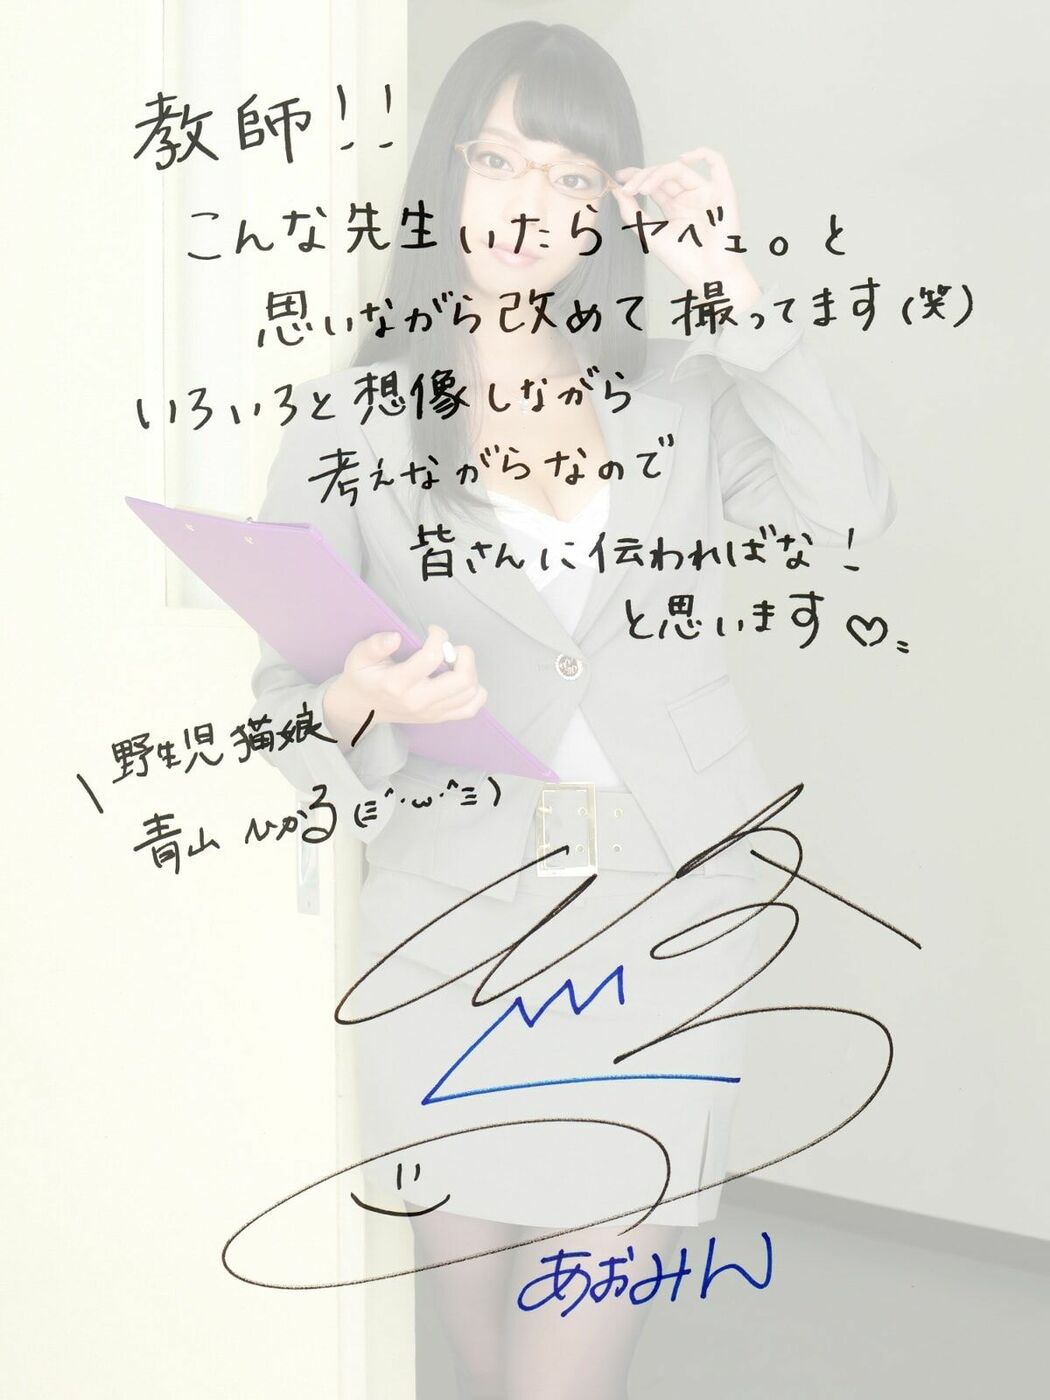 教師!!
こんな先生いたらヤベェ。と
思いながら改めて撮ってます(笑)
いろいろと想像しながら
考えながらなので
皆さんに伝わればな!
と思います♡
\野生児猫娘/
青山ひかる(ミ^・ω・^ミ)
あおみん